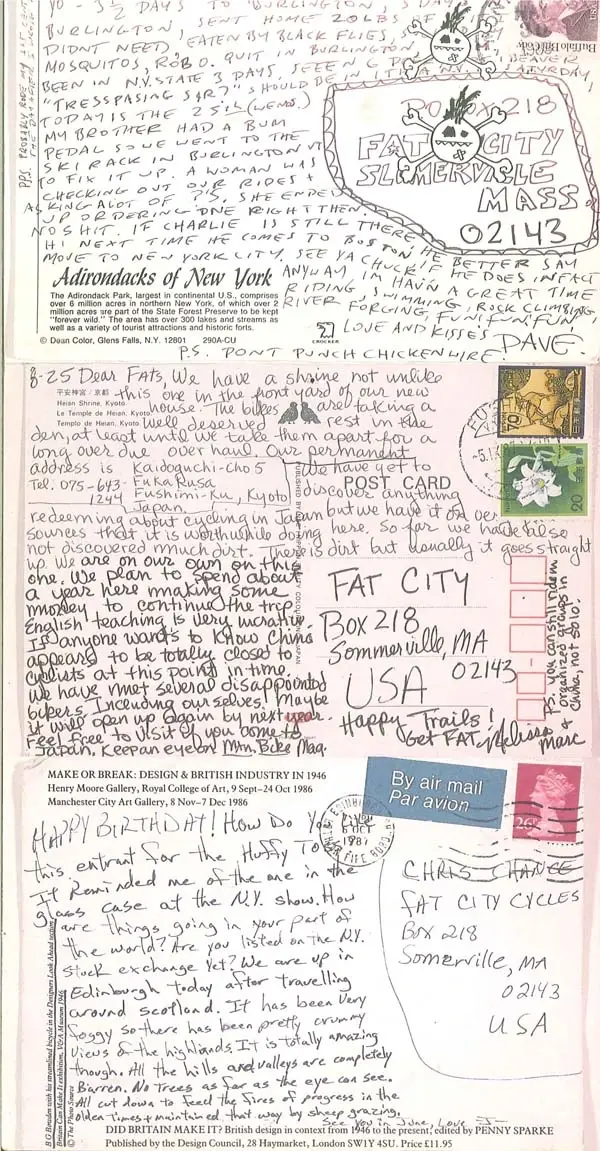 YO - 3 1/2 DAYS TO BURLINGTON, 3 DAYS
BURLINGTON, SENT HOME 20 LBS OF
DIDNT NEED, EATEN BY BLACK FLIES,
MOSQUITOS, ROB D. QUIT IN BURLINGTON,
BEEN IN N.Y. STATE 3 DAYS, SEEEN 6 BEAVER
"TRESSPASING SIR?" SHOULD BE IN ITHACA NY SATYRDAY,
TODAY IS THE 25th (WENS.)
MY BROTHER HAD A BUM
PEDAL SO WE WENT TO THE
SKI RACK IN BURLINGTON VT
TO FIX IT UP. A WOMAN WAS
CHECKING OUT OUR RIDES +
ASKING ALOT OF ?'S. SHE ENDED
UP ORDERING ONE RIGHT THEN.
NO SHIT. IF CHARLIE IS STILL THERE
HI NEXT TIME HE COMES TO BOSTON HE BETTER SAY
MOVE TO NEW YORK CITY, SEE YA CHUCK, IF HE DOES INFACT
ANYWAY, IM HAVN A GREAT TIME
RIDING, SWIMMING, ROCK CLIMBING,
RIVER FORGING, FUN! FUN! FUN!
LOVE AND KISSES
DAVE.
P.S. DONT PUNCH CHICKENWIRE!
PPS. PROBABLY RODE MY 1st CENT
THE DAY AFTER I WROTE
Buffalo Bill Cody
USA
PO BOX 218
FAT CITY
SLUMERVILLE
MASS
02143
Adirondacks of New York
The Adirondack Park, largest in continental U.S., comprises
over 6 million acres in northern New York, of which over 2
million acres are part of the State Forest Preserve to be kept
"forever wild." The area has over 300 lakes and streams as
well as a variety of tourist attractions and historic forts.
© Dean Color, Glens Falls, N.Y. 12801 290A-CU
CROCKER
8-25 Dear Fats, We have a shrine not unlike
this one in the front yard of our new
house. The bikes are taking a
well deserved rest in the
den, at least until we take them apart for a
long over due over haul. Our permanent
address is Kaidoguchi-cho 5
Tel. 075-643-1244
FukaKusa
Fushimi-Ku, Kyoto
Japan.
We have yet to
discover anything
redeeming about cycling in Japan but we have it on
sources that it is worthwhile doing here. So far we have also
not discovered much dirt. There is dirt but usually it goes straight
up. We are on our own on this
one. We plan to spend about
a year here making some
money to continue the trip.
English teaching is very lucrative.
If anyone wants to know China
appeared to be totally closed to
cyclists at this point in time.
We have met several disappointed
bikers. Including ourselves! Maybe
it will open up again by next year.
Feel free to visit if you come to
Japan. Keep an eye on Mtn. Bike Mag.
平安神宮 / 京都
Heian Shrine, Kyoto
Le Temple de Heian, Kyoto
Templo de Heian, Kyoto
POST CARD
20
FAT CITY
Box 218
Sommerville, MA
02143
USA
Happy Trails!
Get FAT, Melissa &
Marc
P.S. you can still ride in
organized groups in
China, not solo.
MAKE OR BREAK: DESIGN & BRITISH INDUSTRY IN 1946
Henry Moore Gallery, Royal College of Art, 9 Sept–24 Oct 1986
Manchester City Art Gallery, 8 Nov–7 Dec 1986
By air mail
Par avion
26P
6 OCT
1987
HAPPY BIRTHDAY! How Do You
this entrant for the Huffy
It Reminded me of the one in the
glass case at the N.Y. show. How
are things going in your part of
the world? Are you listed on the N.Y.
stock exchange yet? We are up in
Edinburgh today after travelling
around scotland. It has been very
foggy so there has been pretty crummy
views of the highlands. It is totally amazing
though. All the hills and valleys are completely
Barren. No trees as far as the eye can see.
All cut down to feed the fires of progress in the
olden times + maintained that way by sheep grazing.
See you in June, Love J—
CHRIS CHANCE
FAT CITY CYCLES
Box 218
Somerville, MA
02143
USA
B G Bowden with his streamlined bicycle in the Designers Look Ahead section
Britain Can Make It exhibition, V&A Museum 1946
© The Photo Source
DID BRITAIN MAKE IT? British design in context from 1946 to the present, edited by PENNY SPARKE
Published by the Design Council, 28 Haymarket, London SW1Y 4SU. Price £11.95